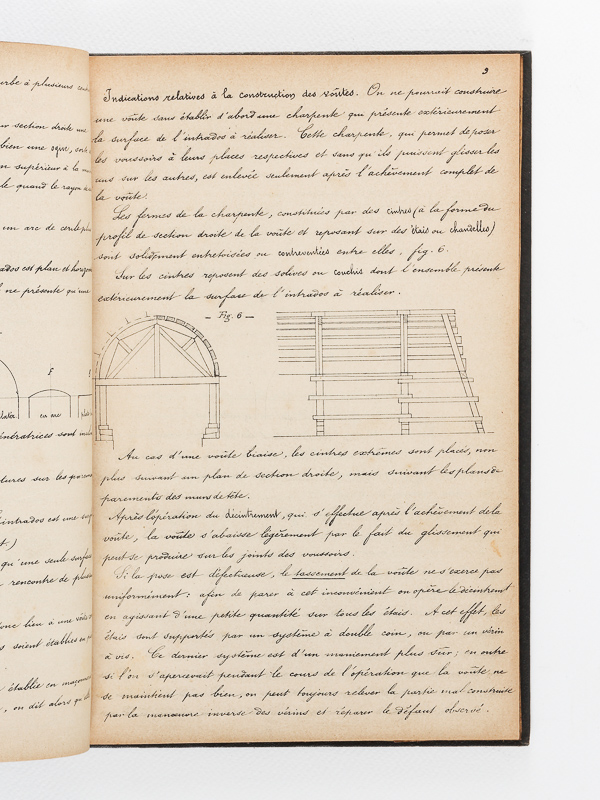 urbe à plusieurs
ur section droite une
bien une
n supérieur à la
le quand le rayon
em arc de cercle plus
ados est plan et horizon
l ne présente qu'une
F
en arc
génératrices sont
dures sur les
l'intrados est une
t.)
qu'une seule surface
rencontre de plus
donc bien à une
s soient établies en
établie en maçonne
, on dit alors qu'
9
Indications relatives à la construction des voûtes. On ne pourrait construire
une voûte sans établir d'abord une charpente qui présente extérieurement
la surface de l'intrados à réaliser. Cette charpente, qui permet de poser
les voussoirs à leurs places respectives et sans qu'ils puissent glisser les
uns sur les autres, est enlevée seulement après l'achèvement complet de
la voûte.
Les fermes de la charpente, constituées par des cintres (à la forme du
profil de section droite de la voûte et reposant sur des étais ou chandelles)
sont solidement entretoisées ou contreventées entre elles, fig. 6.
Sur les cintres reposent des solives ou couchis dont l'ensemble présente
extérieurement la surface de l'intrados à réaliser.
— Fig. 6 —
Au cas d'une voûte biaise, les cintres extrêmes sont placés, non
plus suivant un plan de section droite, mais suivant les plans de
parements des murs de tête.
Après l'opération du décintrement, qui s'effectue après l'achèvement de la
voûte, la voûte s'abaisse légèrement par le fait du glissement qui
peut se produire sur les joints des voussoirs.
Si la pose est défectueuse, le tassement de la voûte ne s'exerce pas
uniformément : afin de parer à cet inconvénient on opère le décintrent
en agissant d'une petite quantité sur tous les étais. A cet effet, les
étais sont supportés par un système à double coin, ou par un vérin
à vis. Ce dernier système est d'un maniement plus sûr ; en outre
si l'on s'apercevait pendant le cours de l'opération que la voûte ne
se maintient pas bien, on peut toujours relever la partie mal construite
par la manœuvre inverse des vérins et réparer le défaut observé.